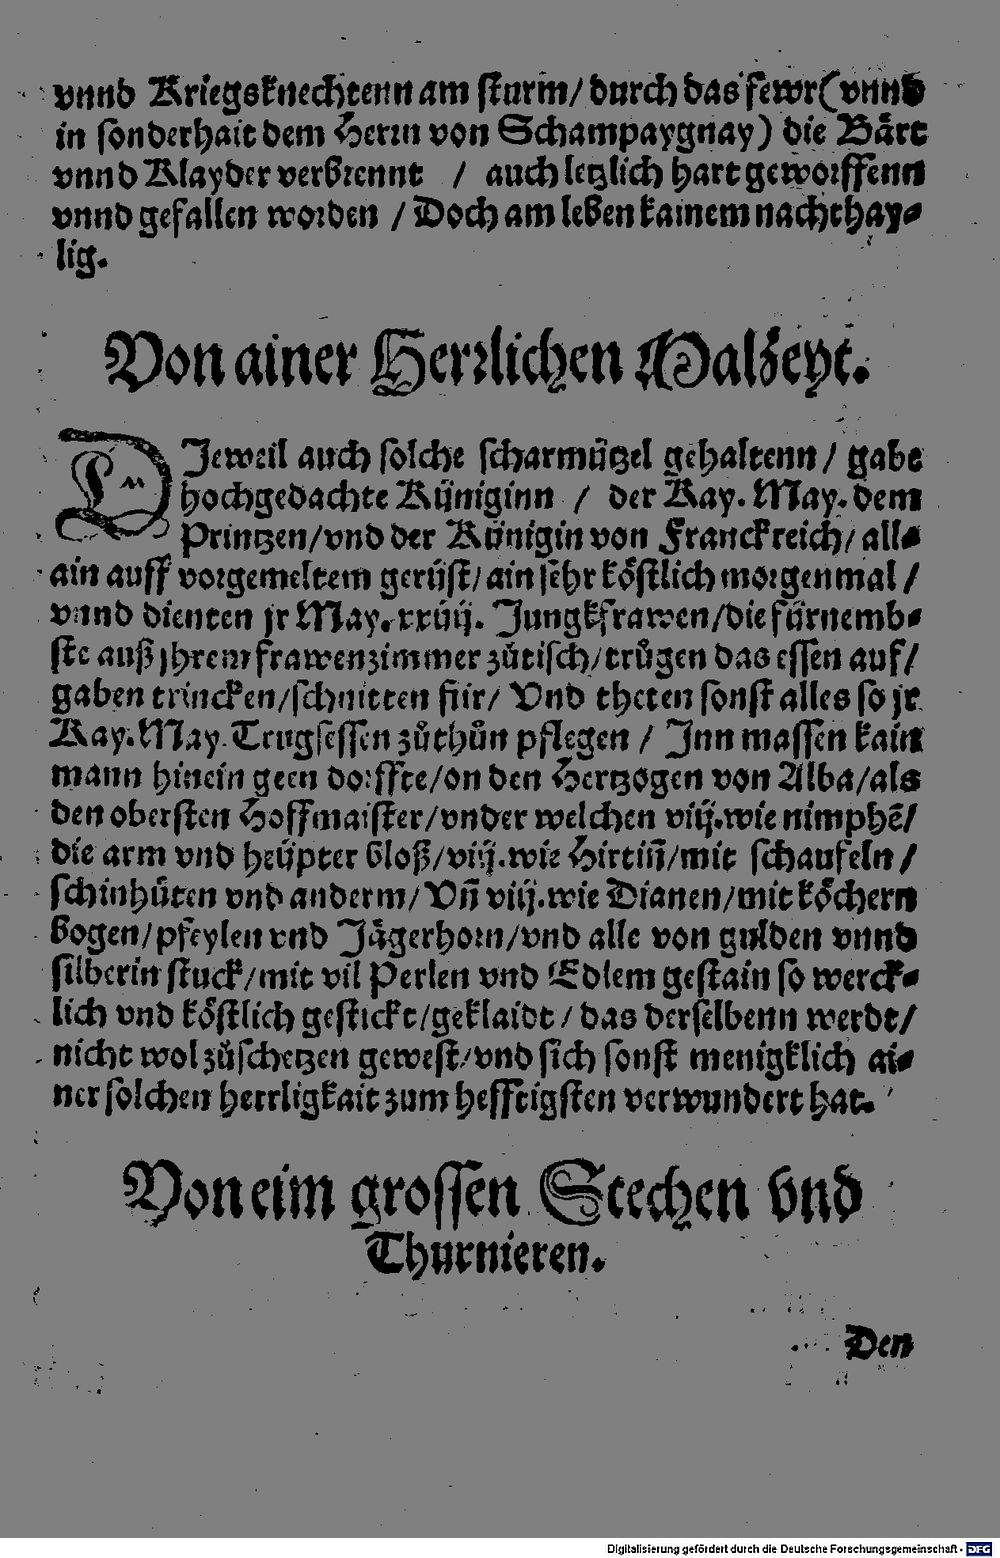 vnnd Kriegsknechtenn am sturm/ durch das fewr (vnnd
in sonderhait dem Herrn von Schampaygnay) die Bärt
vnnd Klayder verbrennt / auch letzlich hart geworffenn
vnnd gefallen worden / Doch am leben kainem nachthay⸗
lig.
Von ainer Herrlichen Malzeyt.
DJeweil auch solche scharmützel gehaltenn / gabe
hochgedachte Küniginn / der Kay. May. dem
Printzen/vnd der Künigin von Franckreich/ all⸗
ain auff vorgemeltem gerüst/ ain sehr köstlich morgenmal /
vnnd dienten jr May. xxiiij. Jungkfrawen/die fürnemb⸗
ste auß jhrem frawenzimmer zůtisch/trůgen das essen auf/
gaben trincken/schnitten für/ Vnd theten sonst alles so jr
Kay. May. Trugsessen zůthůn pflegen / Jnn massen kain
mann hinein geen dorffte/on den Hertzogen von Alba/als
den obersten Hoffmaister/vnder welchen viij.wie nimphē/
die arm vnd heüpter bloß/viij.wie Hirtiñ/mit schaufeln /
schinhüten vnd anderm/ Vñ viij.wie Dianen/mit köchern
bogen/pfeylen vnd Jägerhorn/vnd alle von gulden vnnd
silberin stuck/mit vil Perlen vnd Edlem gestain so werck⸗
lich vnd köstlich gestickt/geklaidt / das derselbenn werdt/
nicht wol zůschetzen gewest/vnd sich sonst menigklich ai⸗
ner solchen herrligkait zum hefftigsten verwundert hat.
Von eim grossen Stechen vnd
Thurnieren.
Den
Digitalisierung gefördert durch die Deutsche Forschungsgemeinschaft - DFG